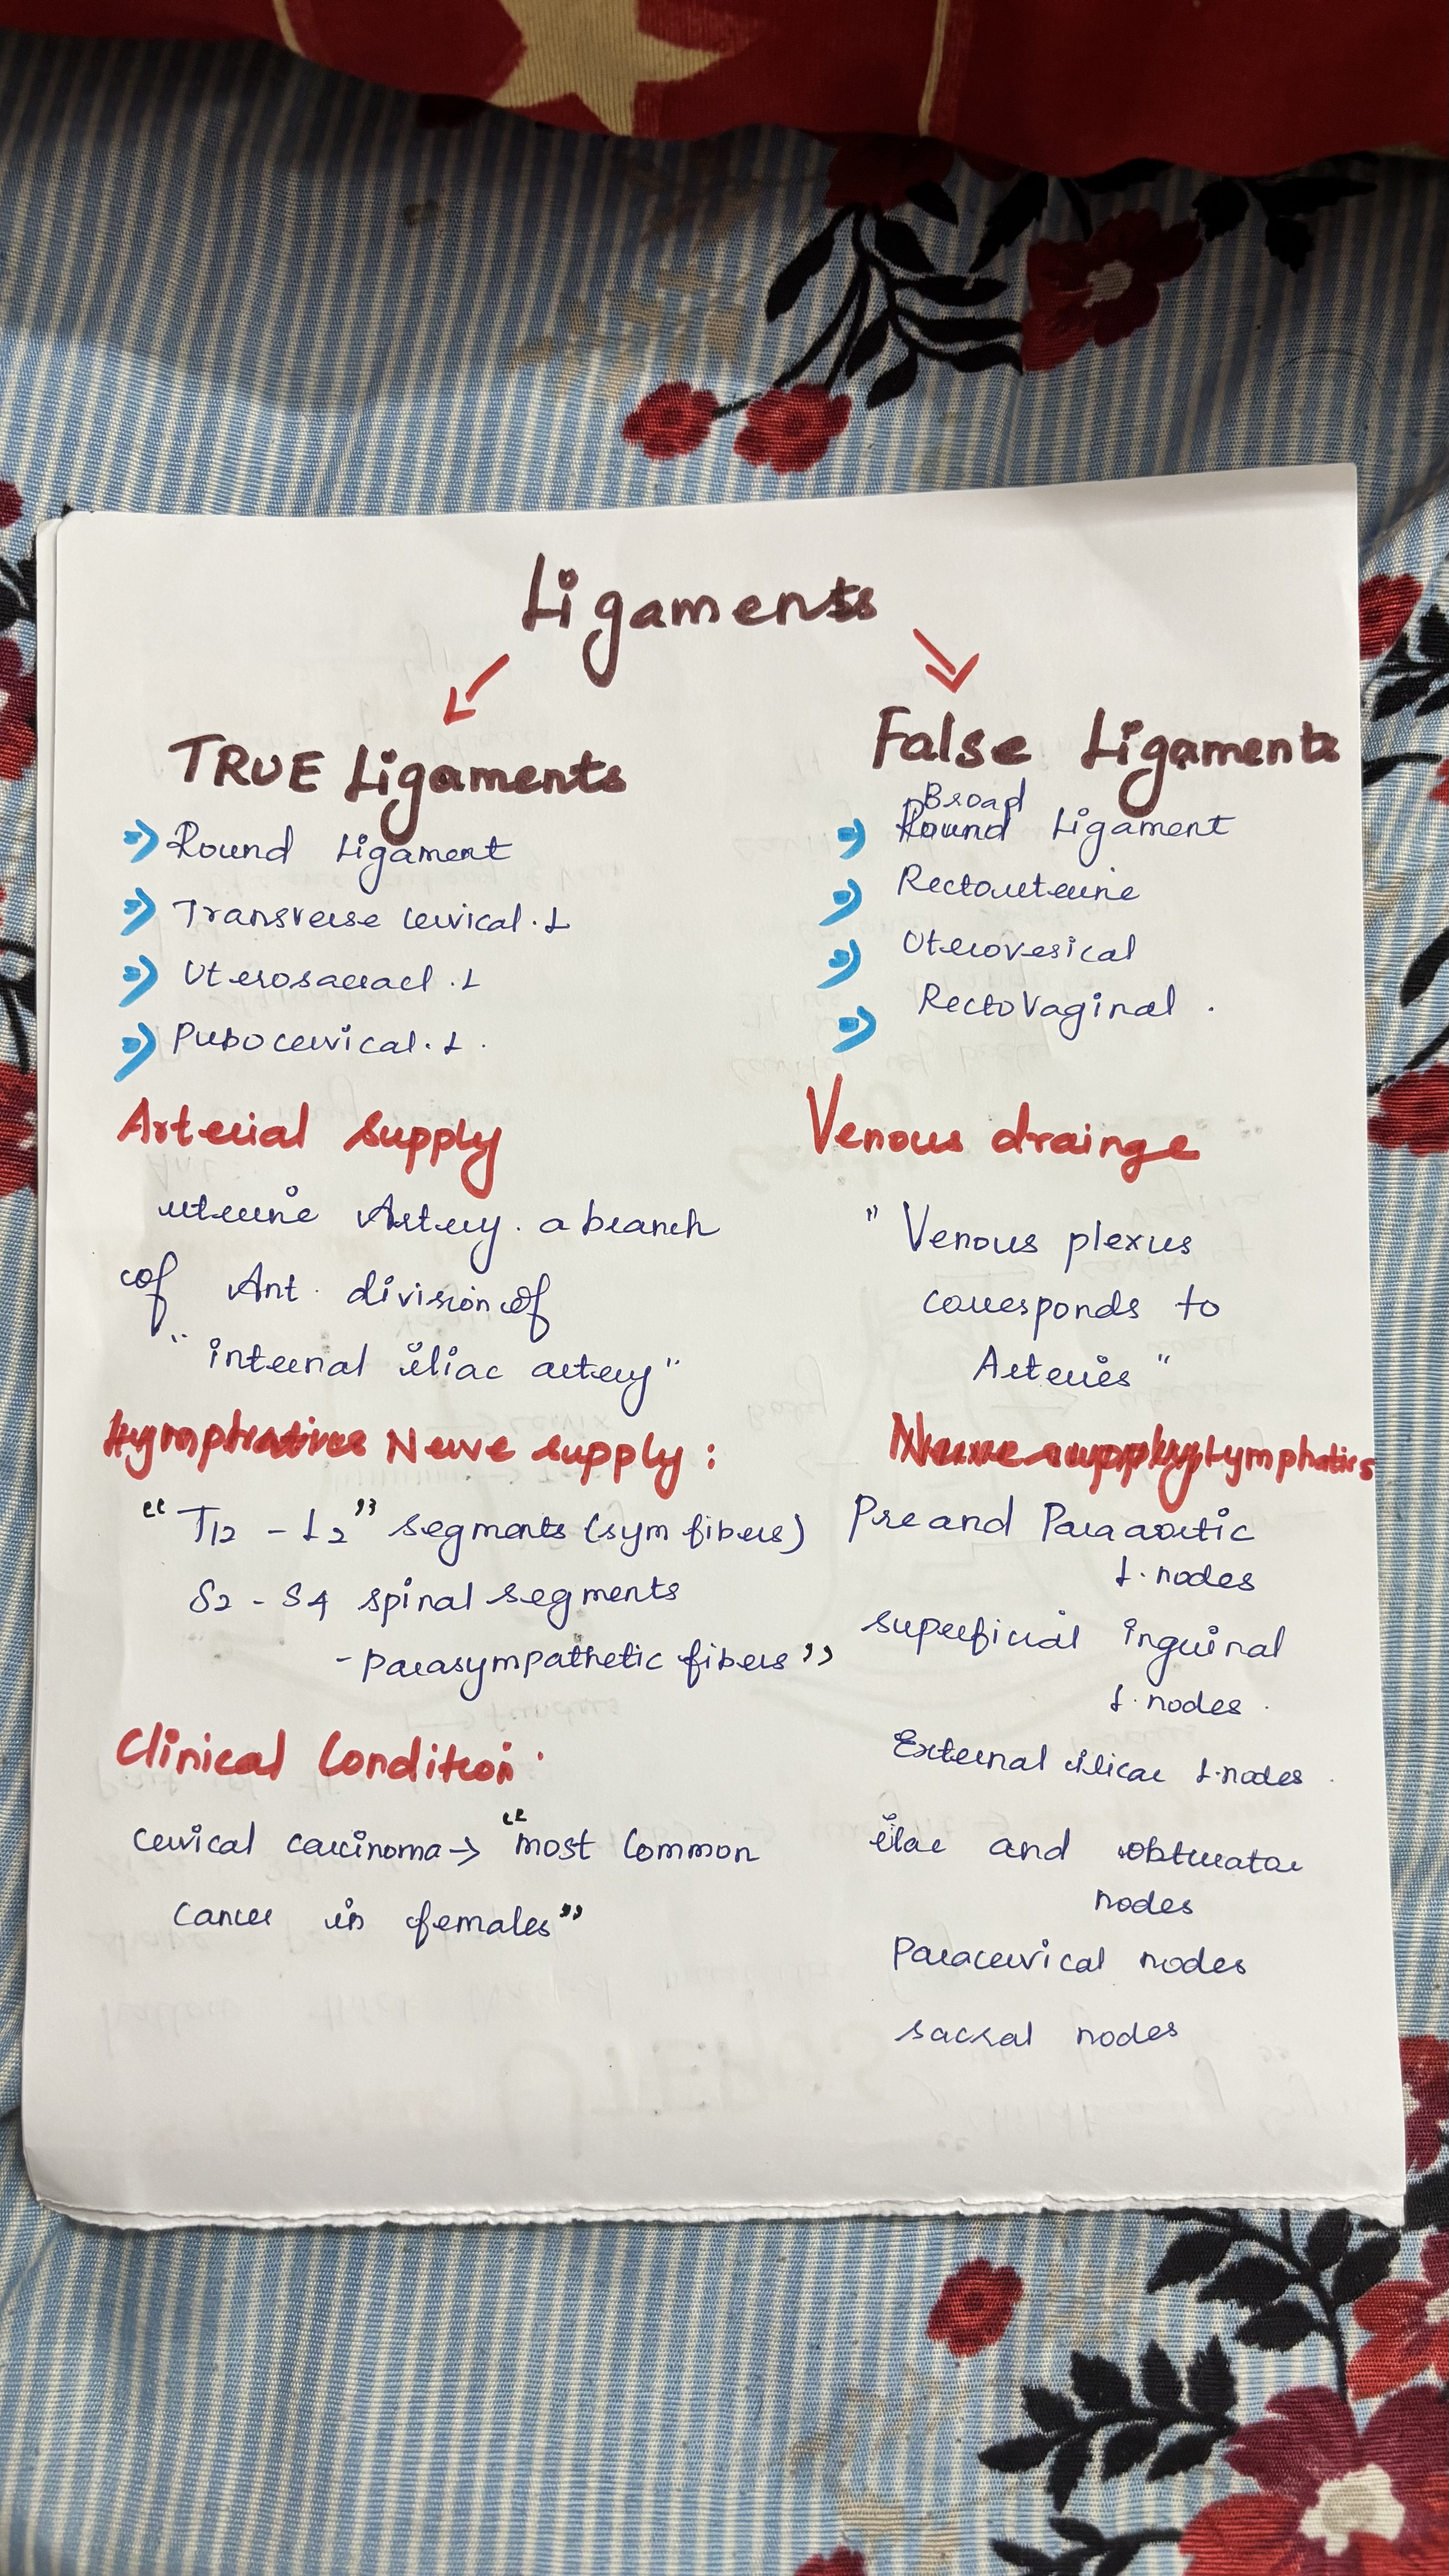 Ligaments
TRUE Ligaments
Round Ligament
Transverse cervical. L
Uterosacracl. L
Pubocervical. L.
False Ligaments
Broad
Round Ligament
Rectouterine
Uterovesical
RectoVaginal.
Arterial supply
uterine Artery. a branch
of Ant. division of
"internal iliac artery"
Venous drainge
"Venous plexus
corresponds to
Arteries"
Lymphatics Nerve supply:
"T12 - L2" segments (sym fibers)
S2 - S4 spinal segments
- parasympathetic fibers"
Nerve supply Lymphatics
Pre and Para aortic
L. nodes
superficial inguinal
L. nodes.
External L. nodes.
and obturator
nodes
Paracervical nodes
sacral nodes
Clinical Condition.
cervical carcinoma → "most Common
Cancer in females"